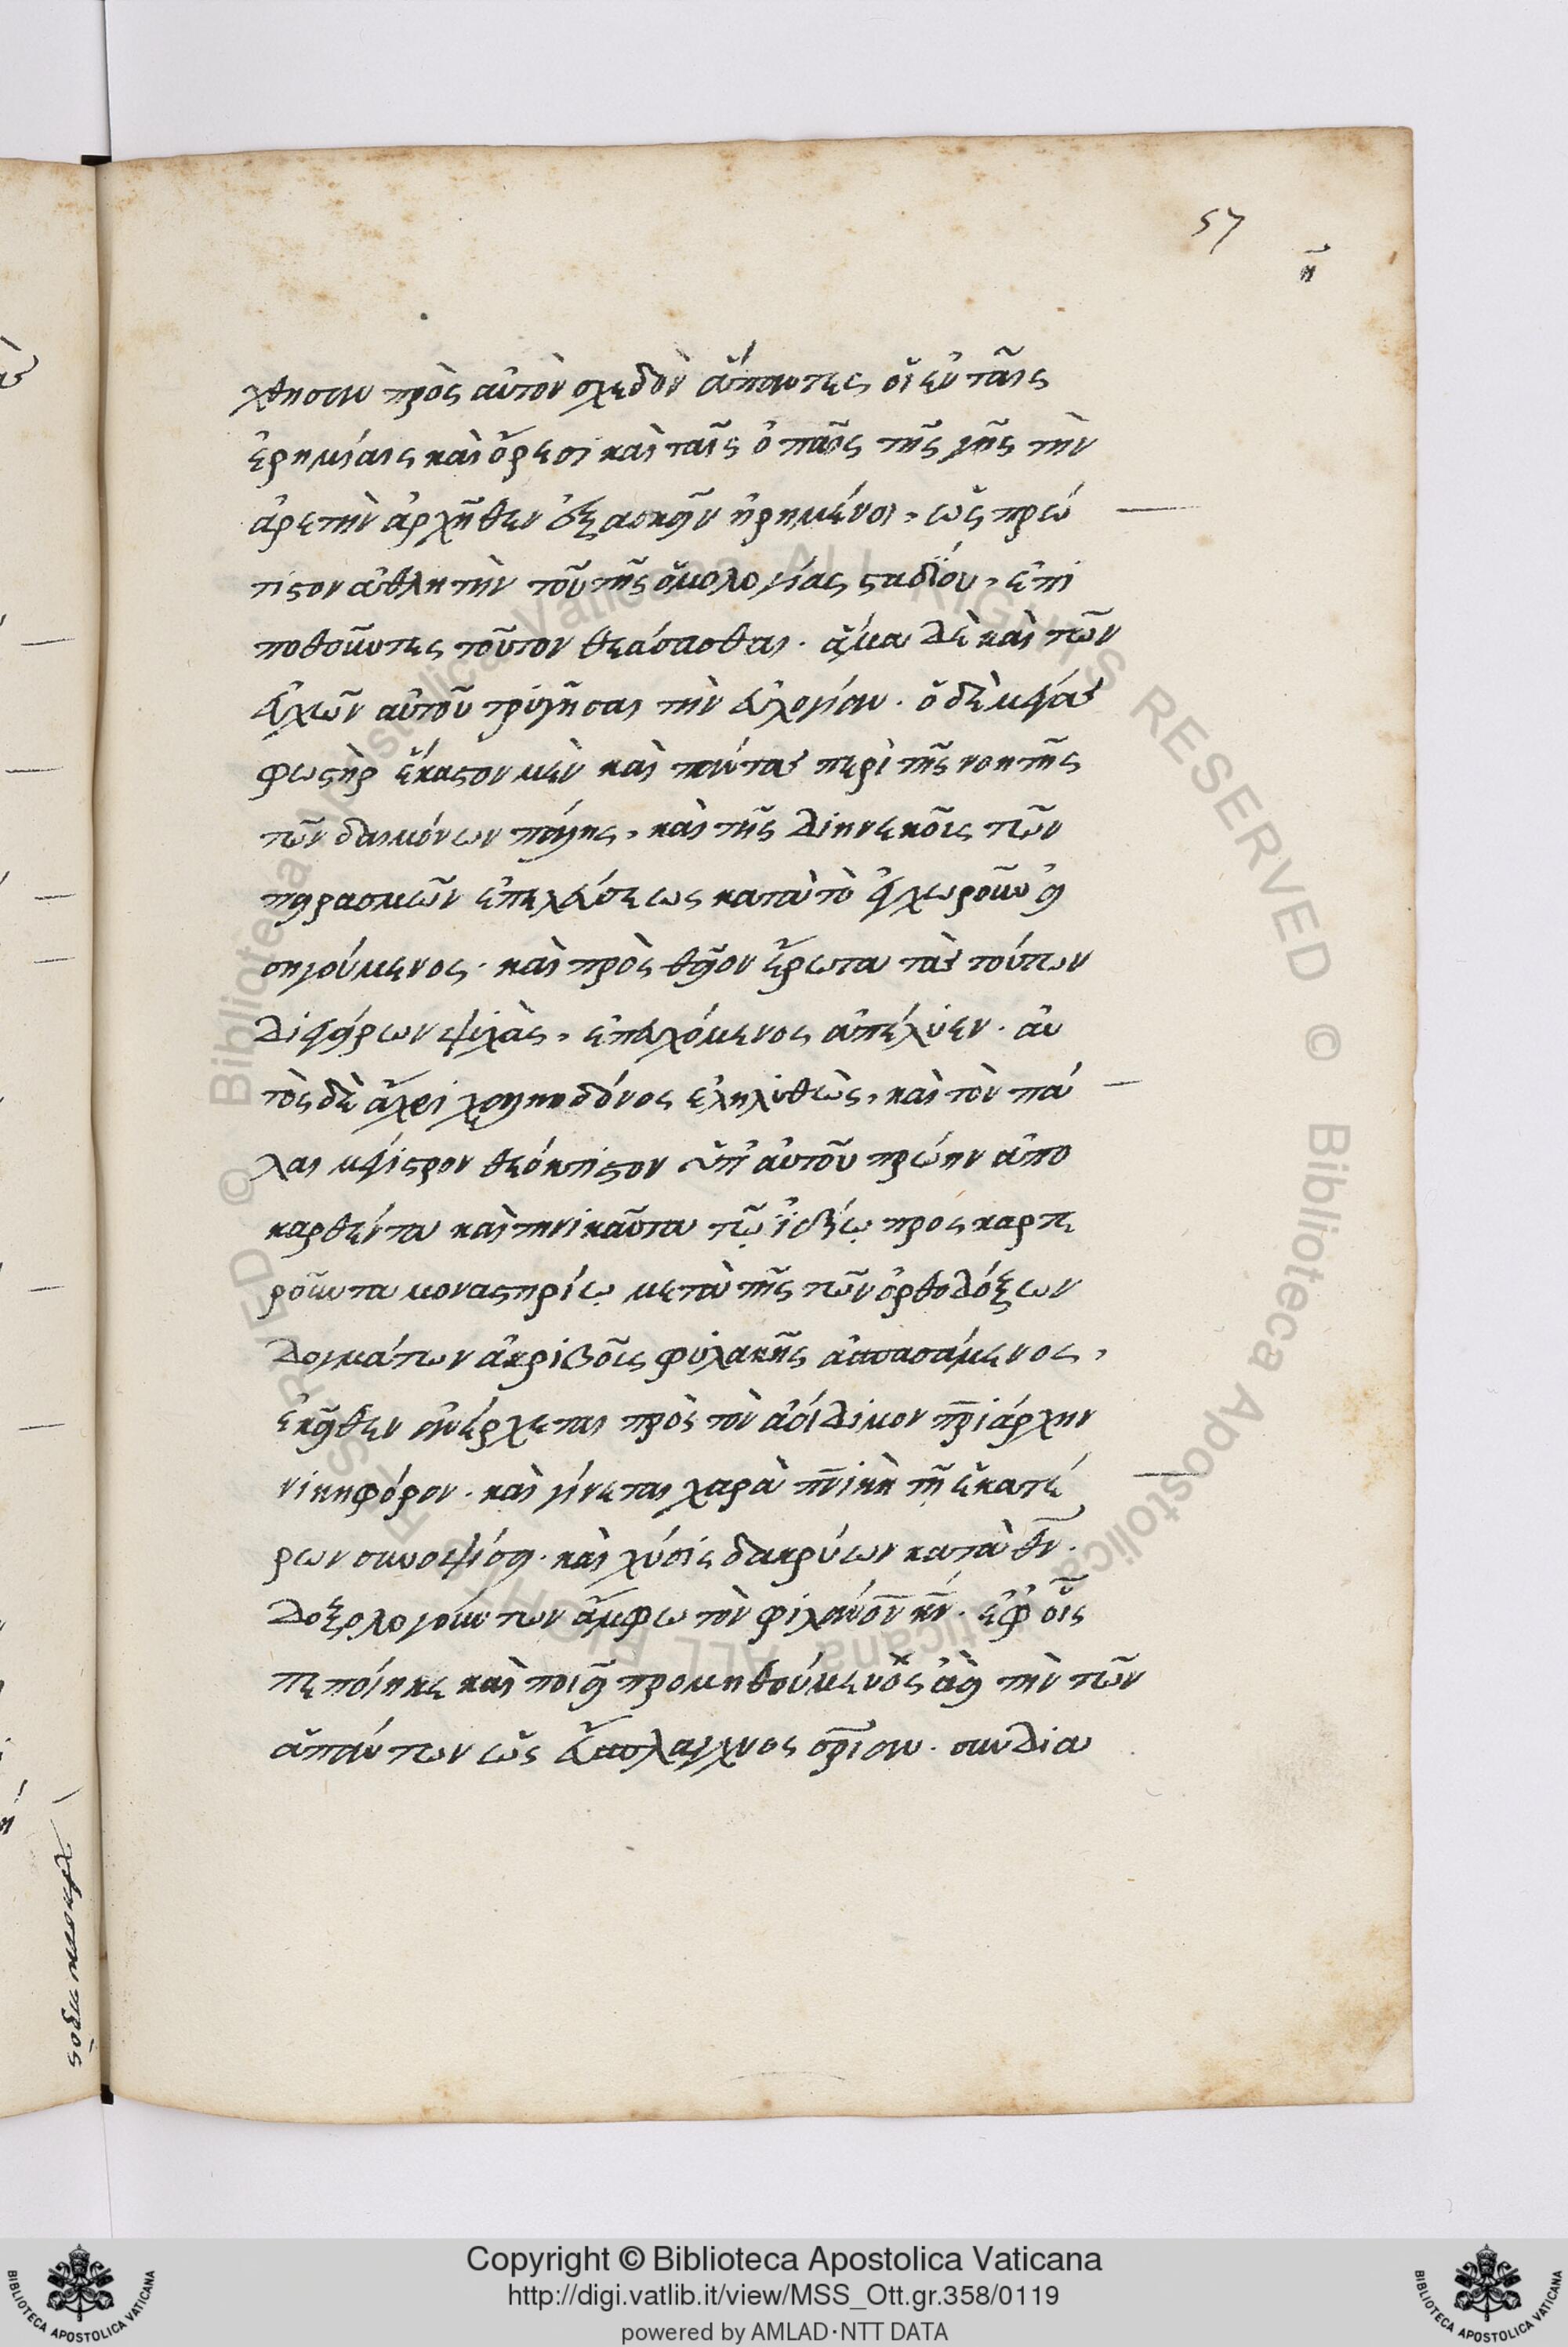 57
η
χθησαν πρὸς αὐτὸν σχεδὸν ἅπαντες οἱ ἐν ταῖς
ἐρημίαις καὶ ὄρεσι καὶ ταῖς ὀπαῖς τῆς γῆς τὴν
ἀρετὴν ἀρχῆθεν ἐξασκεῖν ᾑρημένοι, ὡς πρώ
τιστον ἀθλητὴν τοῦ τῆς ὁμολογίας σταδίου, ἐπι
ποθοῦντες τοῦτον θεάσασθαι. ἅμα δὲ καὶ τῶν
εὐχῶν αὐτοῦ τρυγῆσαι τὴν εὐλογίαν. ὁ δὲ μέγας
φωστὴρ ἕκαστον μὲν καὶ πάντας περὶ τῆς νοητῆς
τῶν δαιμόνων πάλης, καὶ τῆς διηνεκοῦς τῶν
πειρασμῶν ἐπελεύσεως κατὰ τὸ ἐγχωροῦν εἰ
σηγούμενος. καὶ πρὸς θεῖον ἔρωτα τὰς τούτων
διεγείρων ψυχὰς, ἐπευχόμενος ἀπέλυεν. αὐ
τὸς δὲ ἄχρι χαλκηδόνος ἐληλυθὼς, καὶ τὸν πά
λαι μάγιστρον θεόκτιστον ὑπ' αὐτοῦ πρώην ἀπο
καρθέντα καὶ τηνικαῦτα τῷ ἰδίῳ προσκαρτε
ροῦντα μοναστηρίῳ μετὰ τῆς τῶν ὀρθοδόξων
δογμάτων ἀκριβοῦς φυλακῆς ἀσπασάμενος,
ἐκεῖθεν ἀνέρχεται πρὸς τὸν ἀοίδιμον πριάρχην
νικηφόρον. καὶ γίνεται χαρὰ πνικὴ τῇ ἑκατέ
ρων συνόψει. καὶ χύσις δακρύων κατὰ θν.
δοξολογούντων ἄμφω τὸν φιλάνον κν. ἐφ' οἷς
πεποίηκε καὶ ποιεῖ προμηθούμενος ἀεὶ τὴν τῶν
ἁπάντων ὡς εὔσπλαγχνος σριαν. συνδια
Copyright © Biblioteca Apostolica Vaticana
http://digi.vatlib.it/view/MSS_Ott.gr.358/0119
powered by AMLAD·NTT DATA